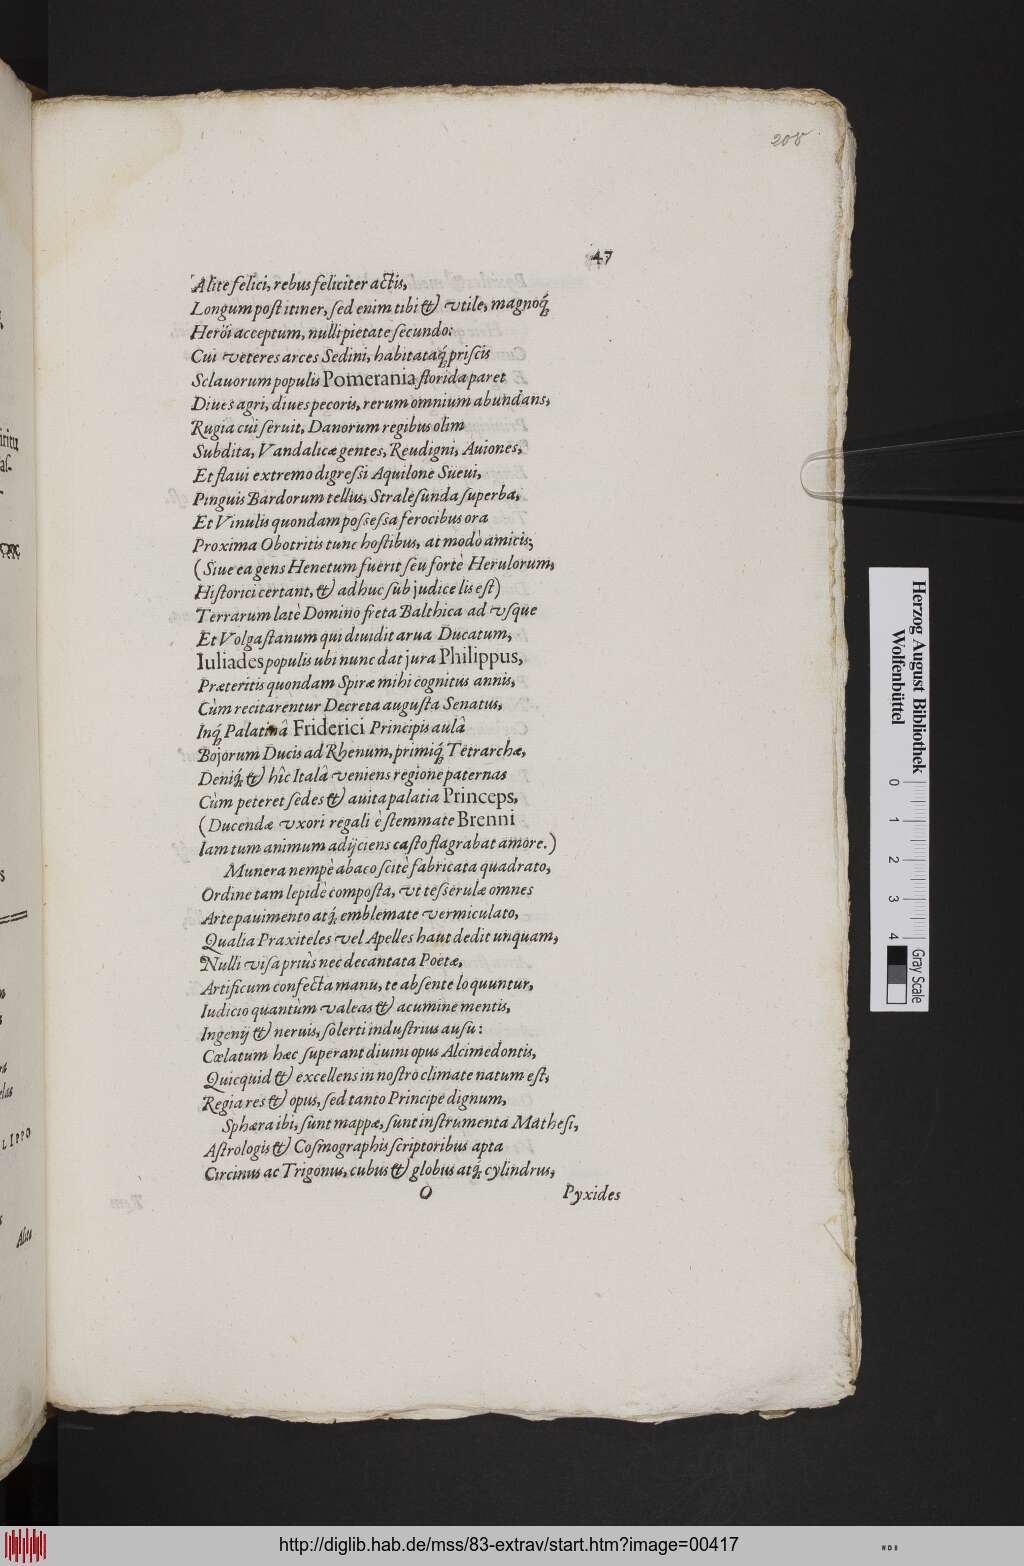 208
47
Alite felici, rebus feliciter actis,
Longum post itiner, sed enim tibi & vtile, magnoq́;
Heröi acceptum, nulli pietate secundo:
Cui veteres arces Sedini, habitataq́; priscis
Sclauorum populis Pomerania florida paret
Diues agri, diues pecoris, rerum omnium abundans,
Rugia cùi seruit, Danorum regibus olim
Subdita, Vandalicæ gentes, Reudigni, Auiones,
Et flaui extremo digressi Aquilone Sueui,
Pinguis Bardorum tellus, Stralesunda superba,
Et Vinulis quondam possessa ferocibus ora
Proxima Obotritis tunc hostibus, at modò amicis;
(Siue ea gens Henetum fuerit seu fortè Herulorum,
Historici certant, & adhuc sub judice lis est)
Terrarum latè Domino freta Balthica ad vsque
Et Volgastanum qui diuidit arua Ducatum,
Iuliades populis ubi nunc dat jura Philippus,
Præteritis quondam Spiræ mihi cognitus annis,
Cùm recitarentur Decreta augusta Senatus,
Inq́; Palatinâ Friderici Principis aulâ
Bojorum Ducis ad Rhenum, primiq́; Tetrarchæ,
Deniq́; & hîc Italâ veniens regione paternas
Cùm peteret sedes & auita palatia Princeps,
(Ducendæ vxori regali è stemmate Brenni
Iam tum animum adijciens casto flagrabat amore.)
Munera nempè abaco scitè fabricata quadrato,
Ordine tam lepidè composta, vt tesserulæ omnes
Arte pauimento atq́; emblemate vermiculato,
Qualia Praxiteles vel Apelles haut dedit unquam,
Nulli visa priùs nec decantata Poetæ,
Artificum confecta manu, te absente loquuntur,
Iudicio quantùm valeas & acumine mentis,
Ingenij & neruis, solerti industrius ausu:
Cœlatum hæc superant diuini opus Alcimedontis,
Quicquid & excellens in nostro climate natum est,
Regia res & opus, sed tanto Principe dignum,
Sphæra ibi, sunt mappæ, sunt instrumenta Mathesi,
Astrologis & Cosmographis scriptoribus apta
Circinus ac Trigonus, cubus & globus atq́; cylindrus,
O Pyxides
Herzog August Bibliothek
Wolfenbüttel
0 1 2 3 4
Gray Scale
http://diglib.hab.de/mss/83-extrav/start.htm?image=00417